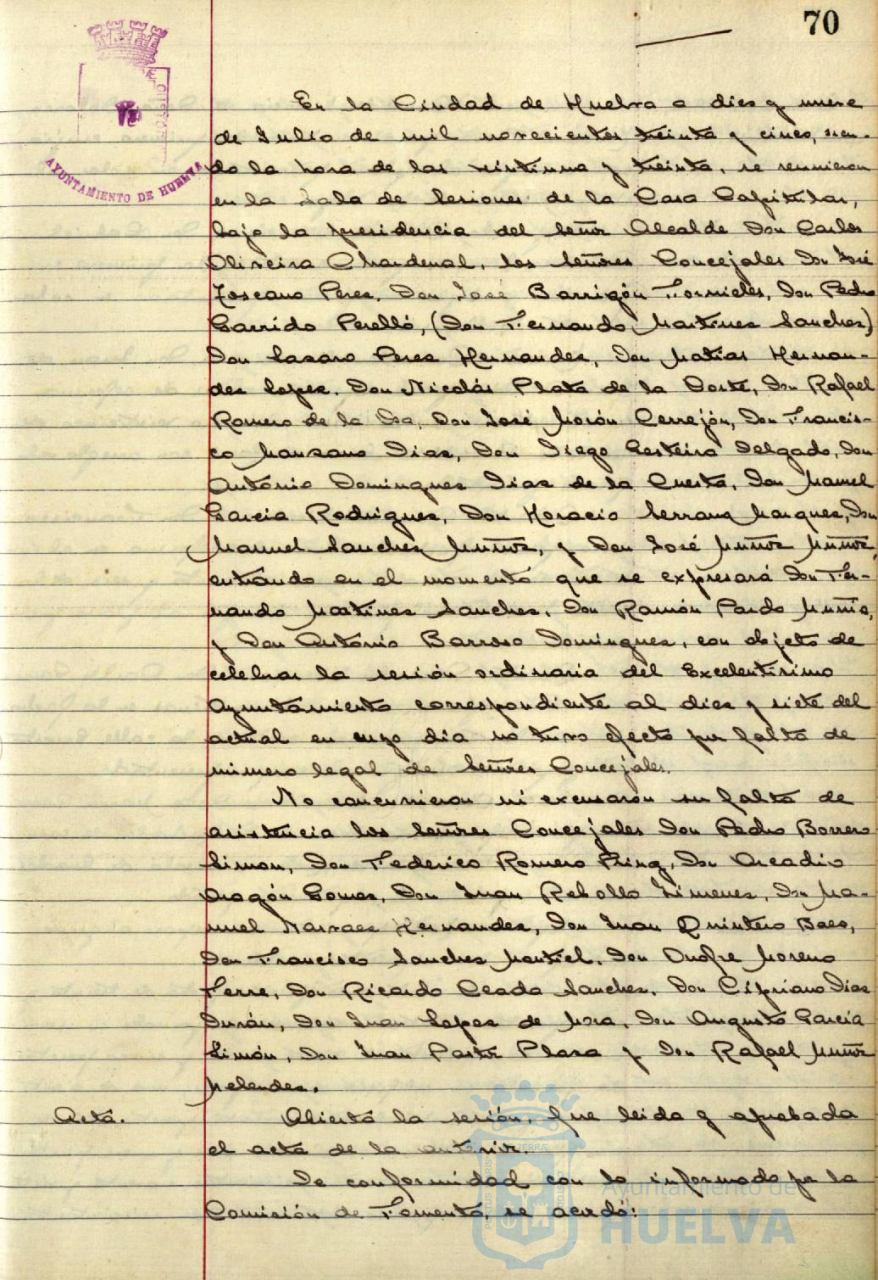 70
AYUNTAMIENTO DE HUELVA
En la Ciudad de Huelva a dies y nueve
de Julio de mil novecientos treinta y cinco, sien-
do la hora de las veintiuna y treinta, se reunieron
en la Sala de Sesiones de la Casa Capitular,
bajo la presidencia del Señor Alcalde Don Carlos
Oliveira Chardenal, los Señores Concejales Don José
Toscano Peres, Don José Barrigón Fornieles, Don Pedro
Garrido Perelló, (Don Fernando Martines Sanches)
Don Lasaro Peres Hernandes, Don Matias Hernan-
des Lopes, Don Nicolás Plata de la Corte, Don Rafael
Romero de la Osa, Don José Morón Cerrejón, Don Francis-
co Mansano Dias, Don Diego Gesteira Delgado, Don
António Domingues Dias de la Cuesta, Don Manuel
Garcia Rodrigues, Don Horacio Serrano Marques, Don
Manuel Sanches Muños, y Don José Muños Muños,
entrando en el momento que se expresará Don Fer-
nando Martines Sanches, Don Ramón Pardo
y Don António Barroso Domingues, con objeto de
celebrar la sesión ordinaria del Excelentisimo
Ayuntamiento correspondiente al dies y siete del
actual en cuyo dia no tuvo efecto por falta de
número legal de Señores Concejales.
No concurrieron ni excusaron su falta de
asistencia los Señores Concejales Don Pedro Borrero
Limon, Don Federico Romero Pring, Don Arcadio
Aragón Gomes, Don Juan Rebollo Jimenes, Don Ma-
nuel Narvaes Hernandes, Don Juan Quintero Baes,
Don Francisco Sanches Montiel, Don Onofre Moreno
Ferre, Don Ricardo Ceada Sanches, Don Cipriano Dias
Durán, Don Juan Lopes de Mora, Don Augusto Garcia
Limón, Don Juan Plasa y Don Rafael Muños
Melendes.
Acta.
Abierta la sesión, fue leida y aprobada
el acta de la anterior.
De conformidad con lo informado por la
Comisión de Fomento, se acordó:
Ayuntamiento de
HUELVA